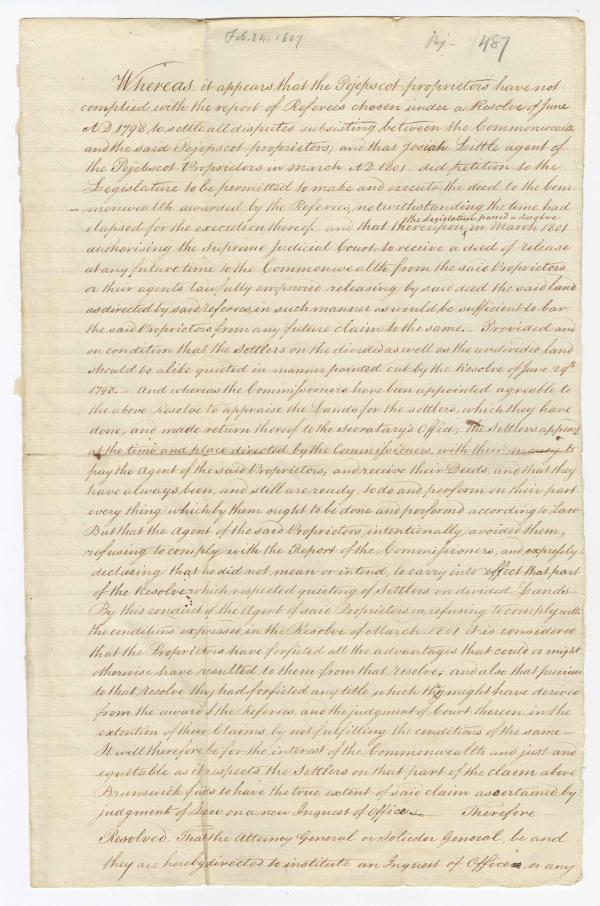 Feb. 24. 1807
Pej- 487
Whereas, it appears, that the Pejepscot proprietors have not
complied with the report of Referees chosen under a Resolve of June
AD 1798 to settle all disputes subsisting between the Commonwealth
and the said Pejepscot proprietors; and that Josiah Little agent of
the Pejobscot Proprietors in march AD. 1801. did petition to the
Legislature to be permitted to make and execute the deed to the Com
monwealth awarded by the Referees, notwithstanding the time had
the Legislature passed a Resolve
elapsed for the execution thereof and that thereupon ^ in March 1801
authorising the Supreme Judicial Court, to receive a deed of release
at any future time to the Commonwealth from the said Proprietors
or their agents lawfully empowred releasing by said deed the said land
as directed by said referees, in such manner as would be sufficient to bar
the said Proprietors from any future claim to the same. Provided and
on condition that the Settlers on the divided as well as the undivided land
should be alike quieted in manner pointed out by the Resolve of June 29th
1798. And whereas the Commissioners have been appointed agreable to
the above Resolve to appraise the Lands for the settlers, which they have
done, and made return thereof to the Secratary's Office; The Settlers appeared
at the time and place directed by the Commissioners, with their money to
pay the Agent of the said Proprietors, and receive their Deeds, and that they
have always been, and still are ready, to do and perform on their part
every thing which by them ought to be done and performed according to Law
But that the Agent of the said Proprietors, intentionally avoided them,
refusing to comply with the Report of the Commissioners, and expressly
declaring that he did not mean or intend, to carry into effect that part
of the Resolve which respected quieting of Settlers on divided Lands.
By this conduct of the Agent of said Proprietors in refusing to comply with
the conditions expressed in the Resolve of March 1801 it is considered
that the Proprietors have forfieted all the advantages that could or might
otherwise have resulted to them from that resolve, and also that previous
to that resolve they had forfieted any title which they might have derived
from the award of the Referees, and the judgment of Court thereon, in the
extention of their Claims, by not fulfilling the conditions of the same —
It will therefore be for the interest of the Commonwealth and just and
equitable as it respects the Settlers on that part of the claim above
Brunswick falls to have the true extent of said claim ascertained by
judgment of Law on a new Inquest of Office — Therefore
Resolved. That the Attorney General or Solicitor General, be and
they are hereby directed to institute an Inquest of Office or any